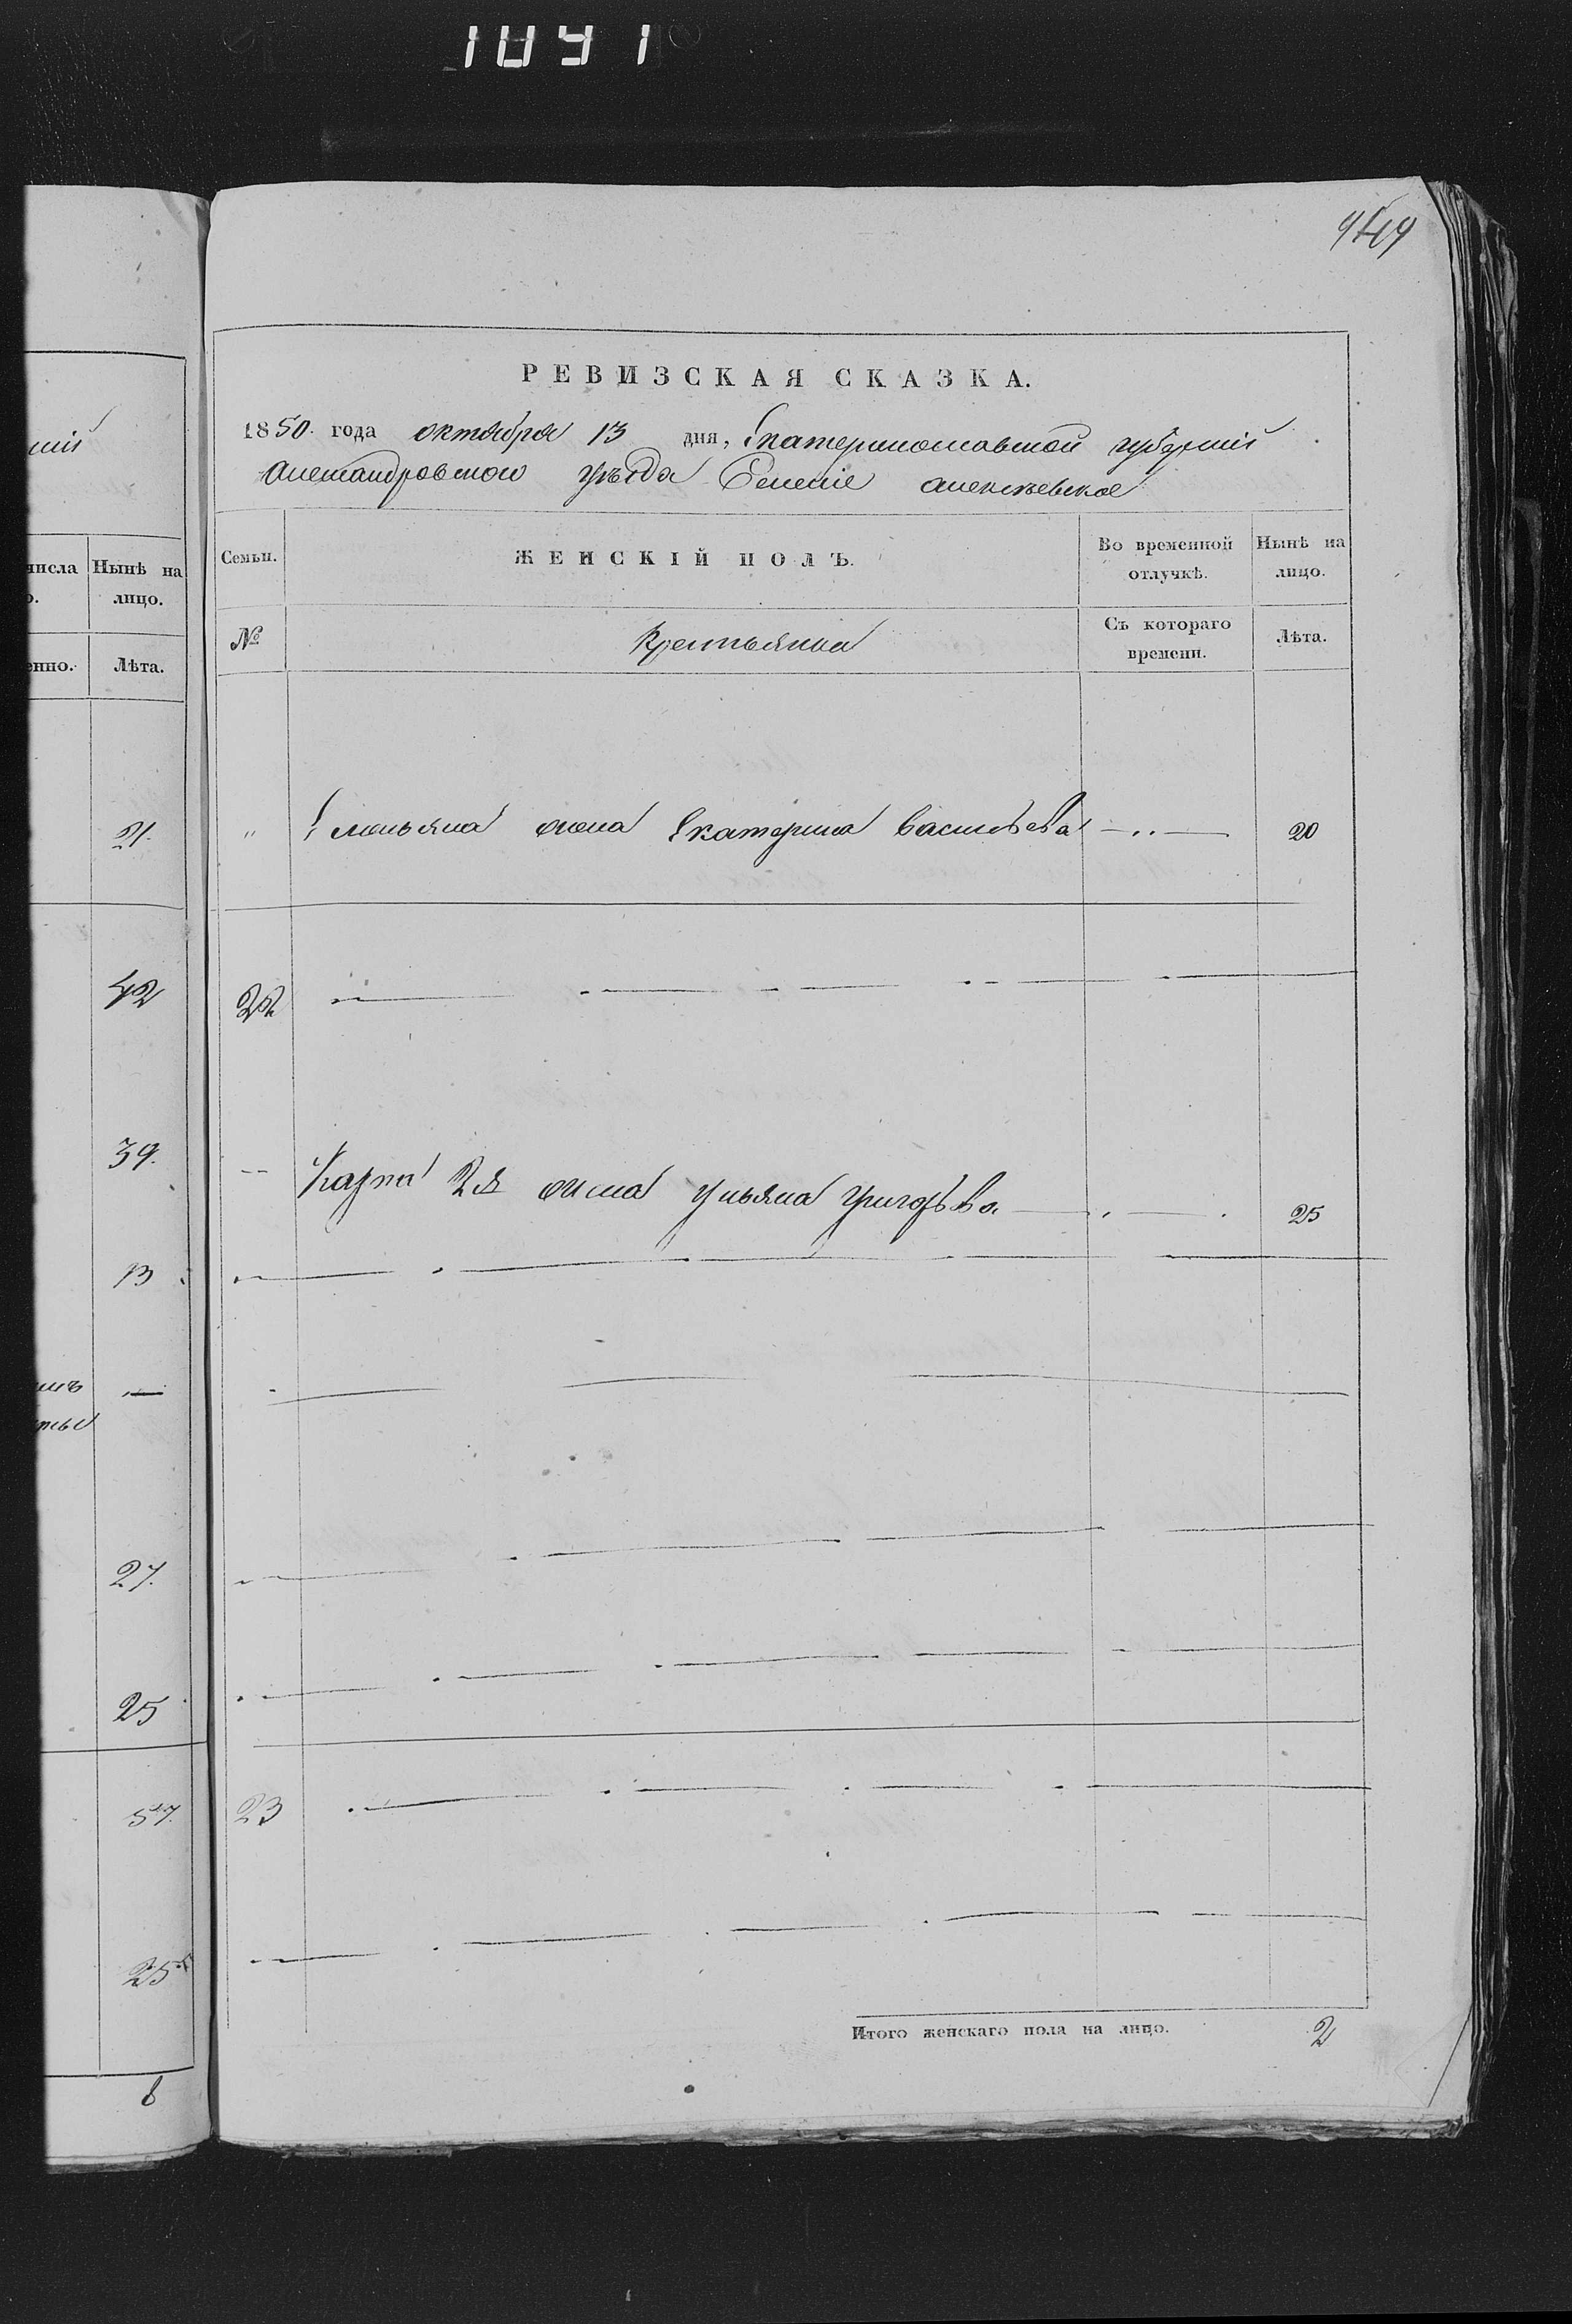 1091
449
РЕВИЗСКАЯ СКАЗКА.
1850. года октября 13 дня, Екатеринославской губерніи
Александровского уѣзда Селеніе алексѣевское
числа Нынѣ на лицо.
Семьи. ЖЕНСКІЙ ПОЛЪ. Во временной отлучкѣ. Нынѣ на лицо.
Лѣта.
№ Крестьянка Съ котораго времени. Лѣта.
21. " Емельяна жена Екатерина Васильева — " — 20
42 22 — — —
39. -- Карпа 2я жена ульяна григорьева — — 25
13 — — —
— — — —
27. — — —
25 — — —
57. 23 — — —
25 — — —
Итого женскаго пола на лицо. 2
6